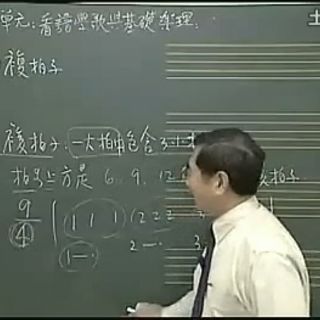 單元：看譜學歌與基礎樂理：
複拍子
複拍子：一大拍中包含3小
拍號上方是 6、9、12 拍子
9 | 1 1 1 (2 2 2 3
④
1— · 2— · 3
土